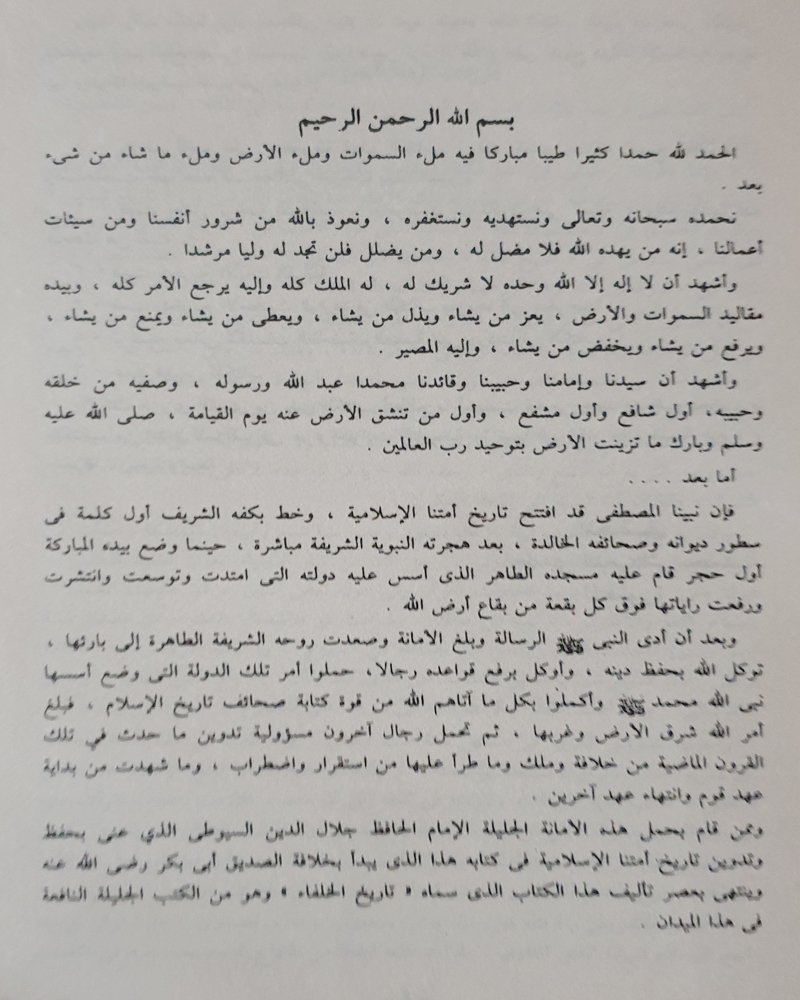 بسم الله الرحمن الرحيم
الحمد لله حمدا كثيرا طيبا مباركا فيه ملء السموات وملء الأرض وملء ما شاء من شىء
بعد .
نحمده سبحانه وتعالى ونستهديه ونستغفره ، ونعوذ بالله من شرور أنفسنا ومن سيئات
أعمالنا ، إنه من يهده الله فلا مضل له ، ومن يضلل فلن تجد له وليا مرشدا .
وأشهد أن لا إله إلا الله وحده لا شريك له ، له الملك كله وإليه يرجع الأمر كله ، وبيده
مقاليد السموات والأرض ، يعز من يشاء ويذل من يشاء ، ويعطى من يشاء ويمنع من يشاء ،
ويرفع من يشاء ويخفض من يشاء ، وإليه المصير .
وأشهد أن سيدنا وإمامنا وحبيبنا وقائدنا محمدا عبد الله ورسوله ، وصفيه من خلقه
وحبيبه، أول شافع وأول مشفع ، وأول من تنشق الأرض عنه يوم القيامة ، صلى الله عليه
وسلم وبارك ما تزينت الأرض بتوحيد رب العالمين .
أما بعد ....
فإن نبينا المصطفى قد افتتح تاريخ أمتنا الإسلامية ، وخط بكفه الشريف أول كلمة فى
سطور ديوانه وصحائفه الخالدة ، بعد هجرته النبوية الشريفة مباشرة ، حينما وضع بيده المباركة
أول حجر قام عليه مسجده الطاهر الذى أسس عليه دولته التى امتدت وتوسعت وانتشرت
ورفعت راياتها فوق كل بقعة من بقاع أرض الله .
وبعد أن أدى النبى ﷺ الرسالة وبلغ الأمانة وصعدت روحه الشريفة الطاهرة إلى بارئها ،
توكل الله بحفظ دينه ، وأوكل برفع قواعده رجالا، حملوا أمر تلك الدولة التى وضع أسسها
نبى الله محمد ﷺ وأكملوا بكل ما آتاهم الله من قوة كتابة صحائف تاريخ الإسلام ، فبلغ
أمر الله شرق الأرض وغربها ، ثم تحمل رجال آخرون مسؤولية تدوين ما حدث في تلك
القرون الماضية من خلافة وملك وما طرأ عليها من استقرار واضطراب ، وما شهدت من بداية
عهد قوم وانتهاء عهد آخرين .
وممن قام بحمل هذه الأمانة الجليلة الإمام الحافظ جلال الدين السيوطى الذي عنى بحفظ
وتدوين تاريخ أمتنا الإسلامية فى كتابه هذا الذى يبدأ بخلافة الصديق أبى بكر رضى الله عنه
وينتهى بعصر تأليف هذا الكتاب الذى سماه « تاريخ الخلفاء » وهو من الكتب الجليلة النافعة
فى هذا الميدان .